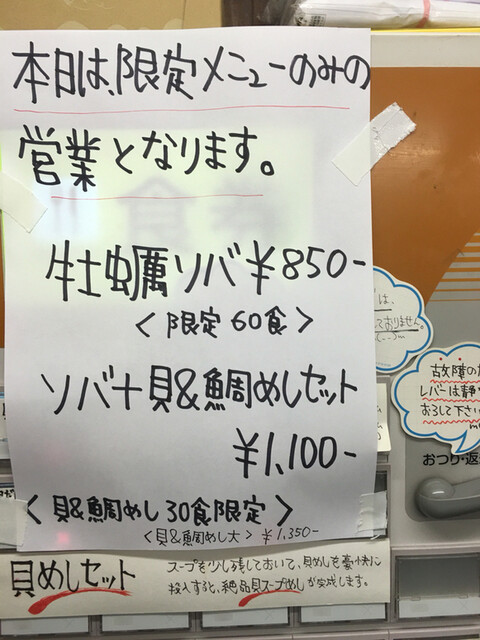 本日は、限定メニューのみの
営業となります。
牡蠣ソバ ¥850-
<限定60食>
ソバ+貝&鯛めしセット
¥1,100-
<貝&鯛めし 30食限定>
<貝&鯛めし大> ¥1,350-
貝めしセット
スープを少し残しておいて、貝めしを豪快に
投入すると、絶品貝スープめしが完成します。
は、
ておりません。
故障の
レバーは静
おろして下さい
おつり・返